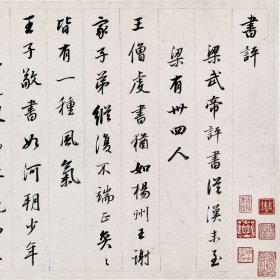 書評
梁武帝評書從漢末至
梁有卅四人
王僧虔書猶如楊州王謝
家子弟縱復不端正奕〻
皆有一種風氣
王子敬書如河朔少年